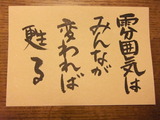 雰囲気は
みんなが
変われば
甦る